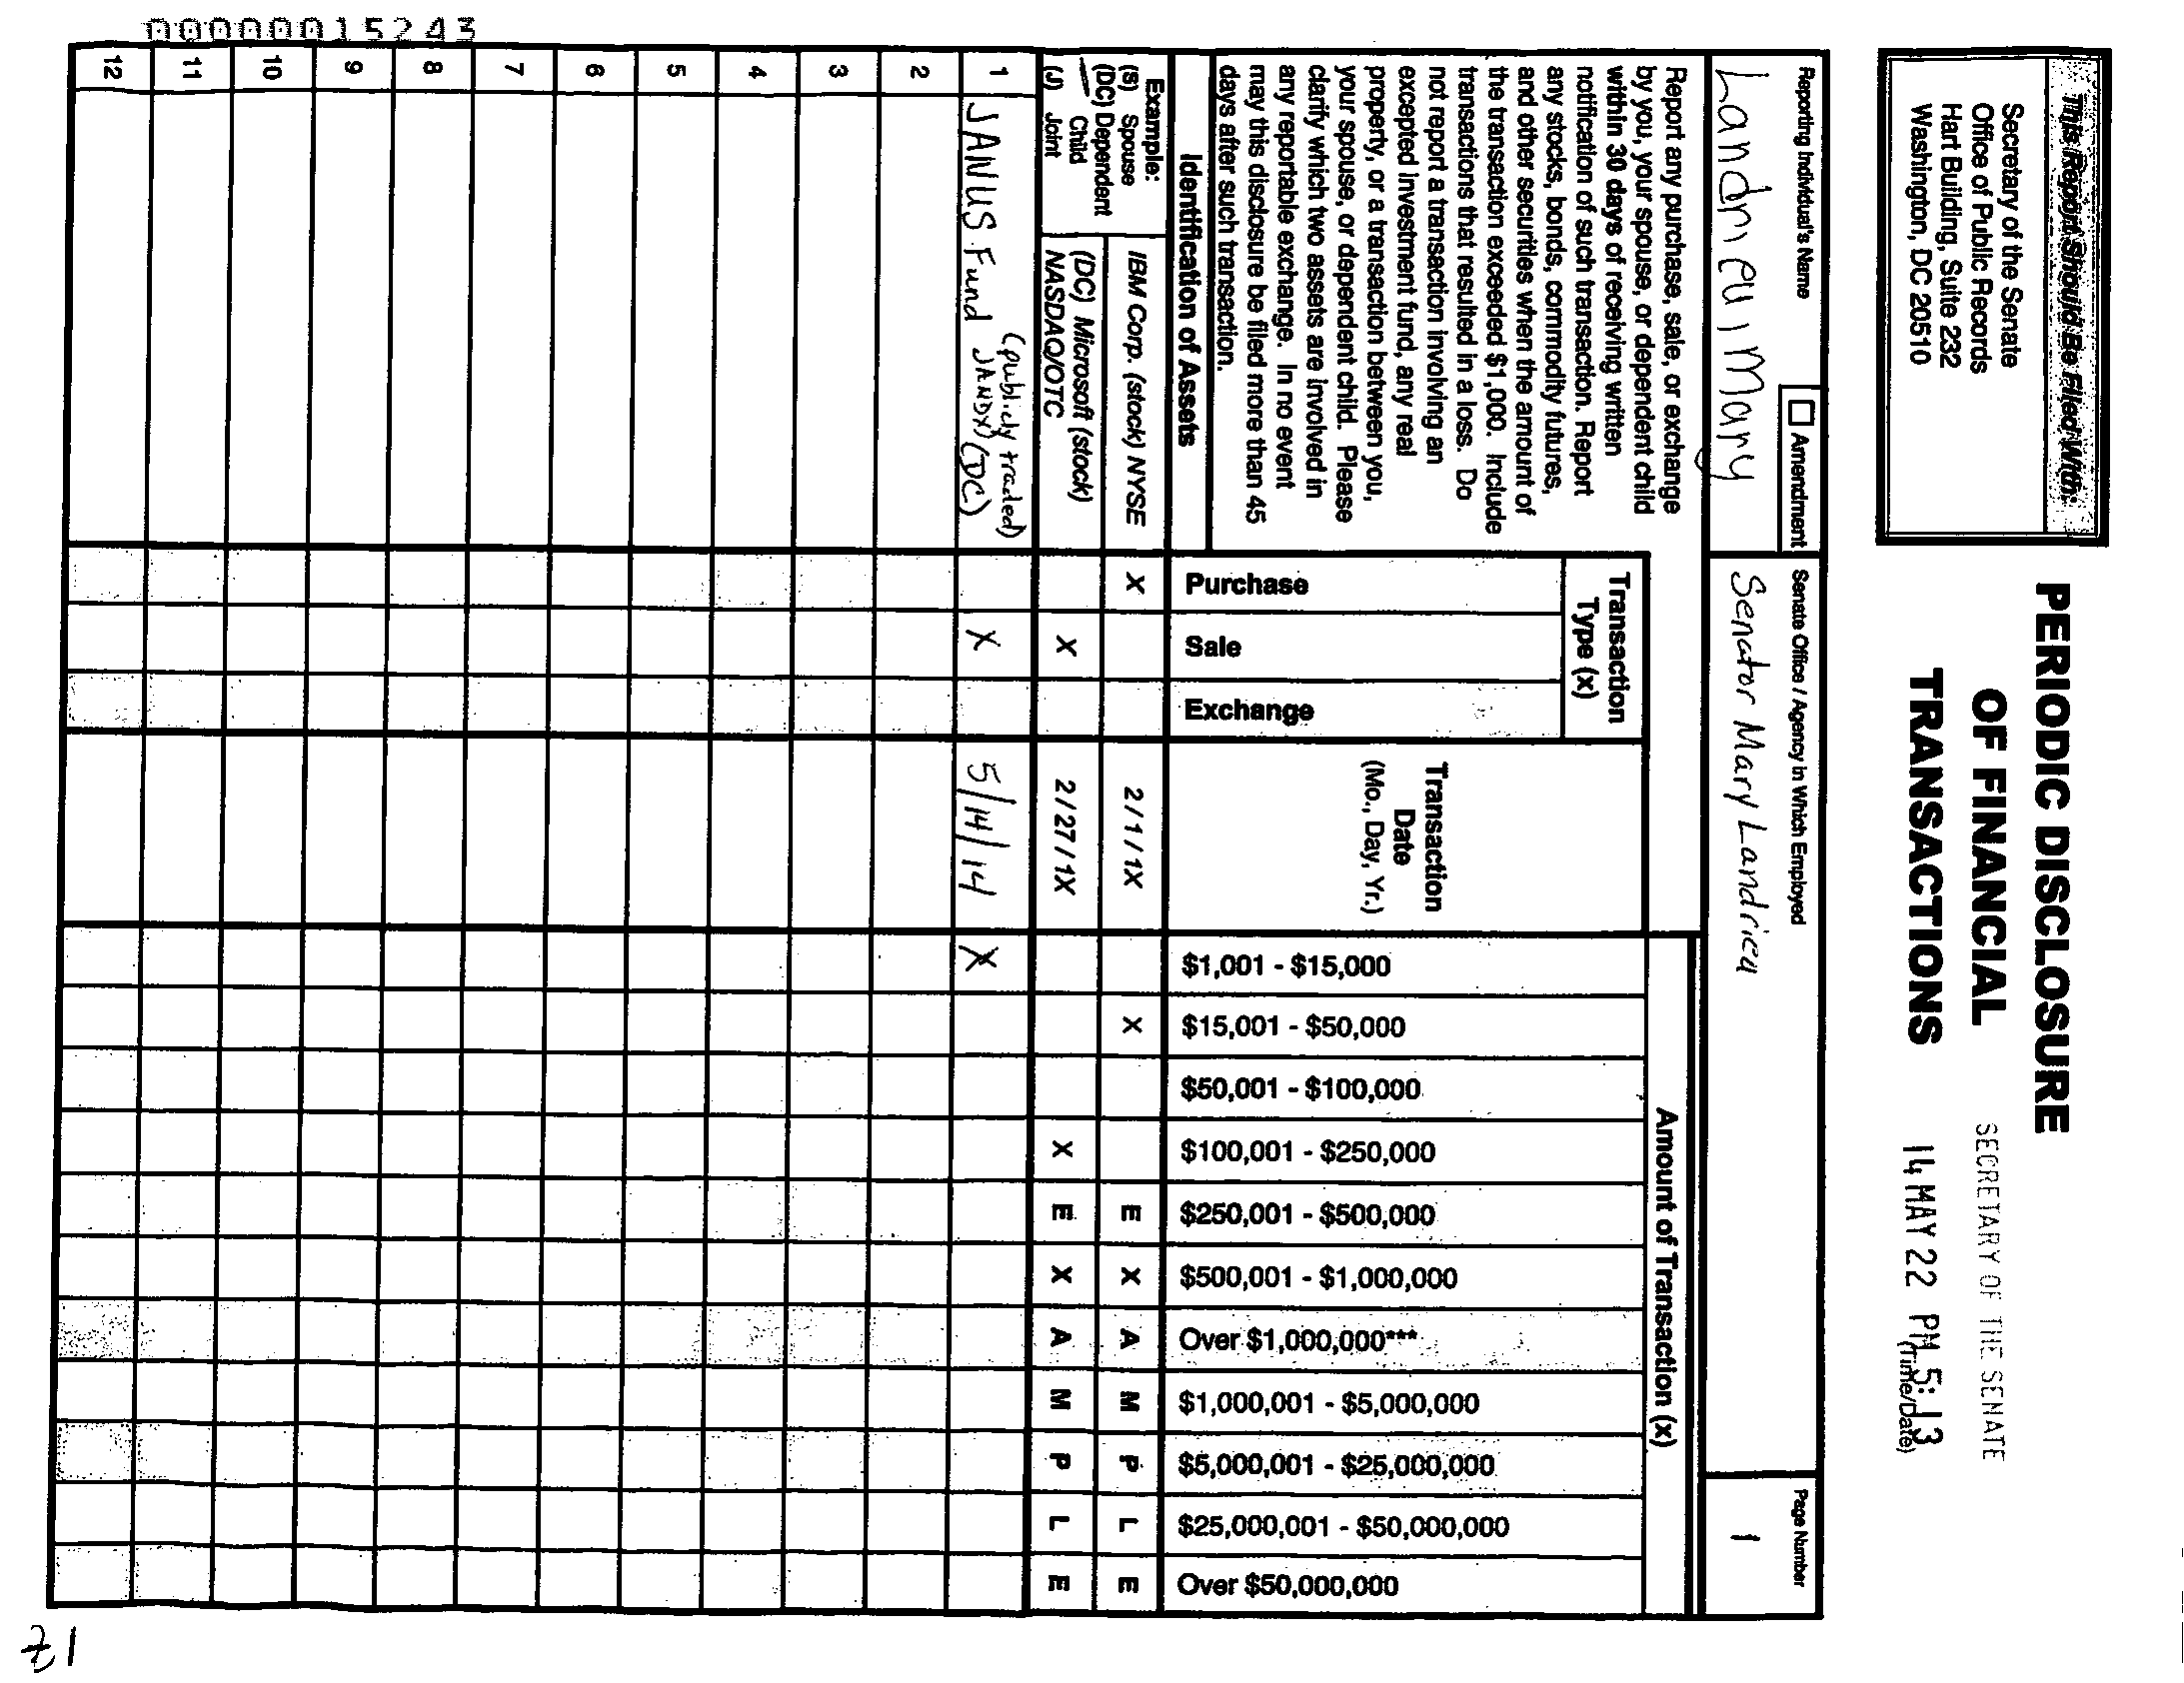 00000015243
This Report Should Be Filed With:
Secretary of the Senate
Office of Public Records
Hart Building, Suite 232
Washington, DC 20510
PERIODIC DISCLOSURE
OF FINANCIAL
TRANSACTIONS
SECRETARY OF THE SENATE
14 MAY 22 PM 5:13
(Time/Date)
Reporting Individual's Name
Landrieu, Mary
Amendment
Senate Office / Agency in Which Employed
Senator Mary Landrieu
Page Number
1
Report any purchase, sale, or exchange
by you, your spouse, or dependent child
within 30 days of receiving written
notification of such transaction. Report
any stocks, bonds, commodity futures,
and other securities when the amount of
the transaction exceeded $1,000. Include
transactions that resulted in a loss. Do
not report a transaction involving an
excepted investment fund, any real
property, or a transaction between you,
your spouse, or dependent child. Please
clarify which two assets are involved in
any reportable exchange. In no event
may this disclosure be filed more than 45
days after such transaction.
Identification of Assets
Transaction
Type (x)
Purchase
Sale
Exchange
Transaction
Date
(Mo., Day, Yr.)
Amount of Transaction (x)
$1,001 - $15,000
$15,001 - $50,000
$50,001 - $100,000
$100,001 - $250,000
$250,001 - $500,000
$500,001 - $1,000,000
Over $1,000,000***
$1,000,001 - $5,000,000
$5,000,001 - $25,000,000
$25,000,001 - $50,000,000
Over $50,000,000
Example:
(S) Spouse
(DC) Dependent
Child
(J) Joint
IBM Corp. (stock) NYSE X 2/1/1X X E X A M P L E
(DC) Microsoft (stock)
NASDAQ/OTC X 2/27/1X X E X A M P L E
(publicly traded)
1 JANUS Fund JANDX) (DC) X 5/14/14 X
2
3
4
5
6
7
8
9
10
11
12